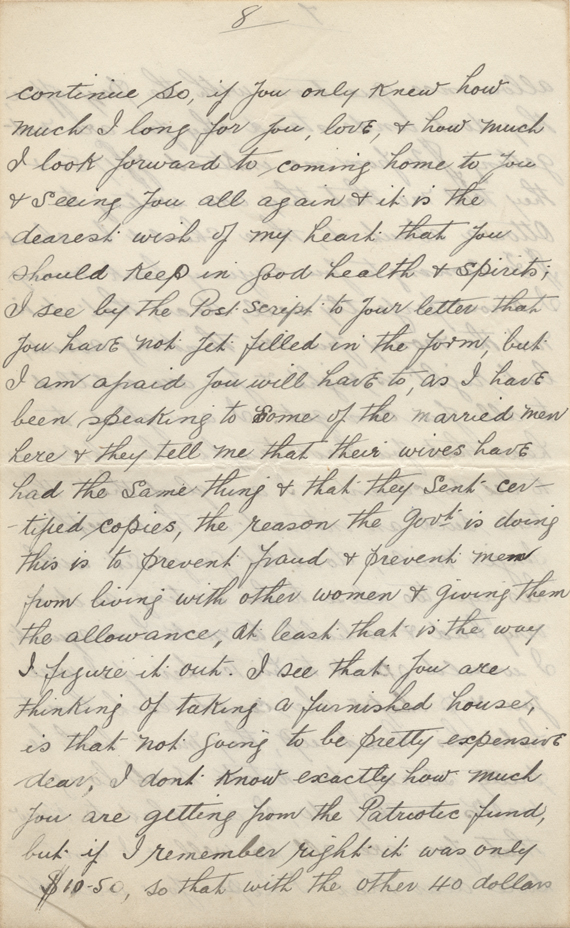 8
continue so, if you only knew how
much I long for you, love, & how much
I look forward to coming home to you
& seeing you all again & it is the
dearest wish of my heart that you
should keep in good health & spirits;
I see by the Post script to your letter that
you have not yet filled in the form, but
I am afraid you will have to, as I have
been speaking to some of the married men
here & they tell me that their wives have
had the same thing & that they sent cer-
-tified copies, the reason the Govt is doing
this is to prevent fraud & prevent men
from living with other women & giving them
the allowance, at least that is the way
I figure it out. I see that you are
thinking of taking a furnished house,
is that not going to be pretty expensive
dear, I dont know exactly how much
you are getting from the Patriotic fund,
but if I remember right it was only
$10-50, so that with the other 40 dollars